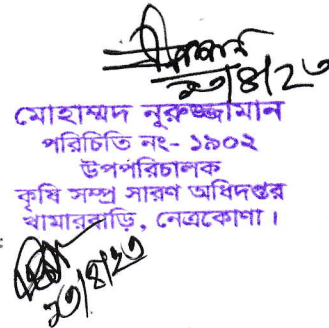 ২৩/৪/২৩
মোহাম্মদ নুরুজ্জামান
পরিচিতি নং- ১৯০২
উপপরিচালক
কৃষি সম্প্র সারণ অধিদপ্তর
খামারবাড়ি, নেত্রকোণা।
২৩/৪/২৩